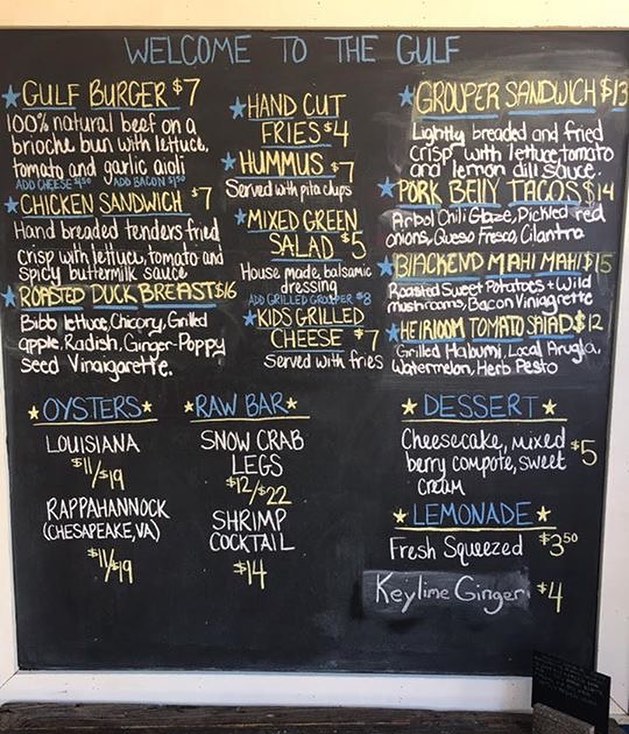 WELCOME TO THE GULF
GULF BURGER $7
100% natural beef on a
brioche bun with lettuce,
tomato and garlic aioli
ADD CHEESE $1.50 ADD BACON $1.50
CHICKEN SANDWICH $7
Hand breaded tenders fried
crisp with lettuce, tomato and
spicy buttermilk sauce
ROASTED DUCK BREAST $16
Bibb lettuce, Chicory, Grilled
apple, Radish, Ginger-Poppy
Seed Vinaigarette.
HAND CUT
FRIES $4
HUMMUS $7
Served with pita chips
MIXED GREEN
SALAD $5
House made, balsamic
dressing
ADD GRILLED GROUPER $8
KIDS GRILLED
CHEESE $7
Served with fries
GROUPER SANDWICH $13
Lightly breaded and fried
crisp with lettuce, tomato
and lemon dill sauce.
PORK BELLY TACOS $14
Arbol Chili Glaze, Pickled red
onions, Queso Fresco, Cilantro
BlACKEND MAHI MAHI $15
Roasted Sweet Potatoes + Wild
mushrooms, Bacon Viniagrette
HEIRlOOM TOMATO SAlAD $12
Grilled Haloumi, Local Arugla,
Watermelon, Herb Pesto
OYSTERS
LOUISIANA
$11/$19
RAPPAHANNOCK
(CHESAPEAKE, VA)
$11/$19
RAW BAR
SNOW CRAB
LEGS
$12/$22
SHRIMP
COCKTAIL
$14
DESSERT
Cheesecake, mixed
berry compote, sweet
cream
$5
LEMONADE
Fresh Squeezed $3.50
Keylime Ginger $4